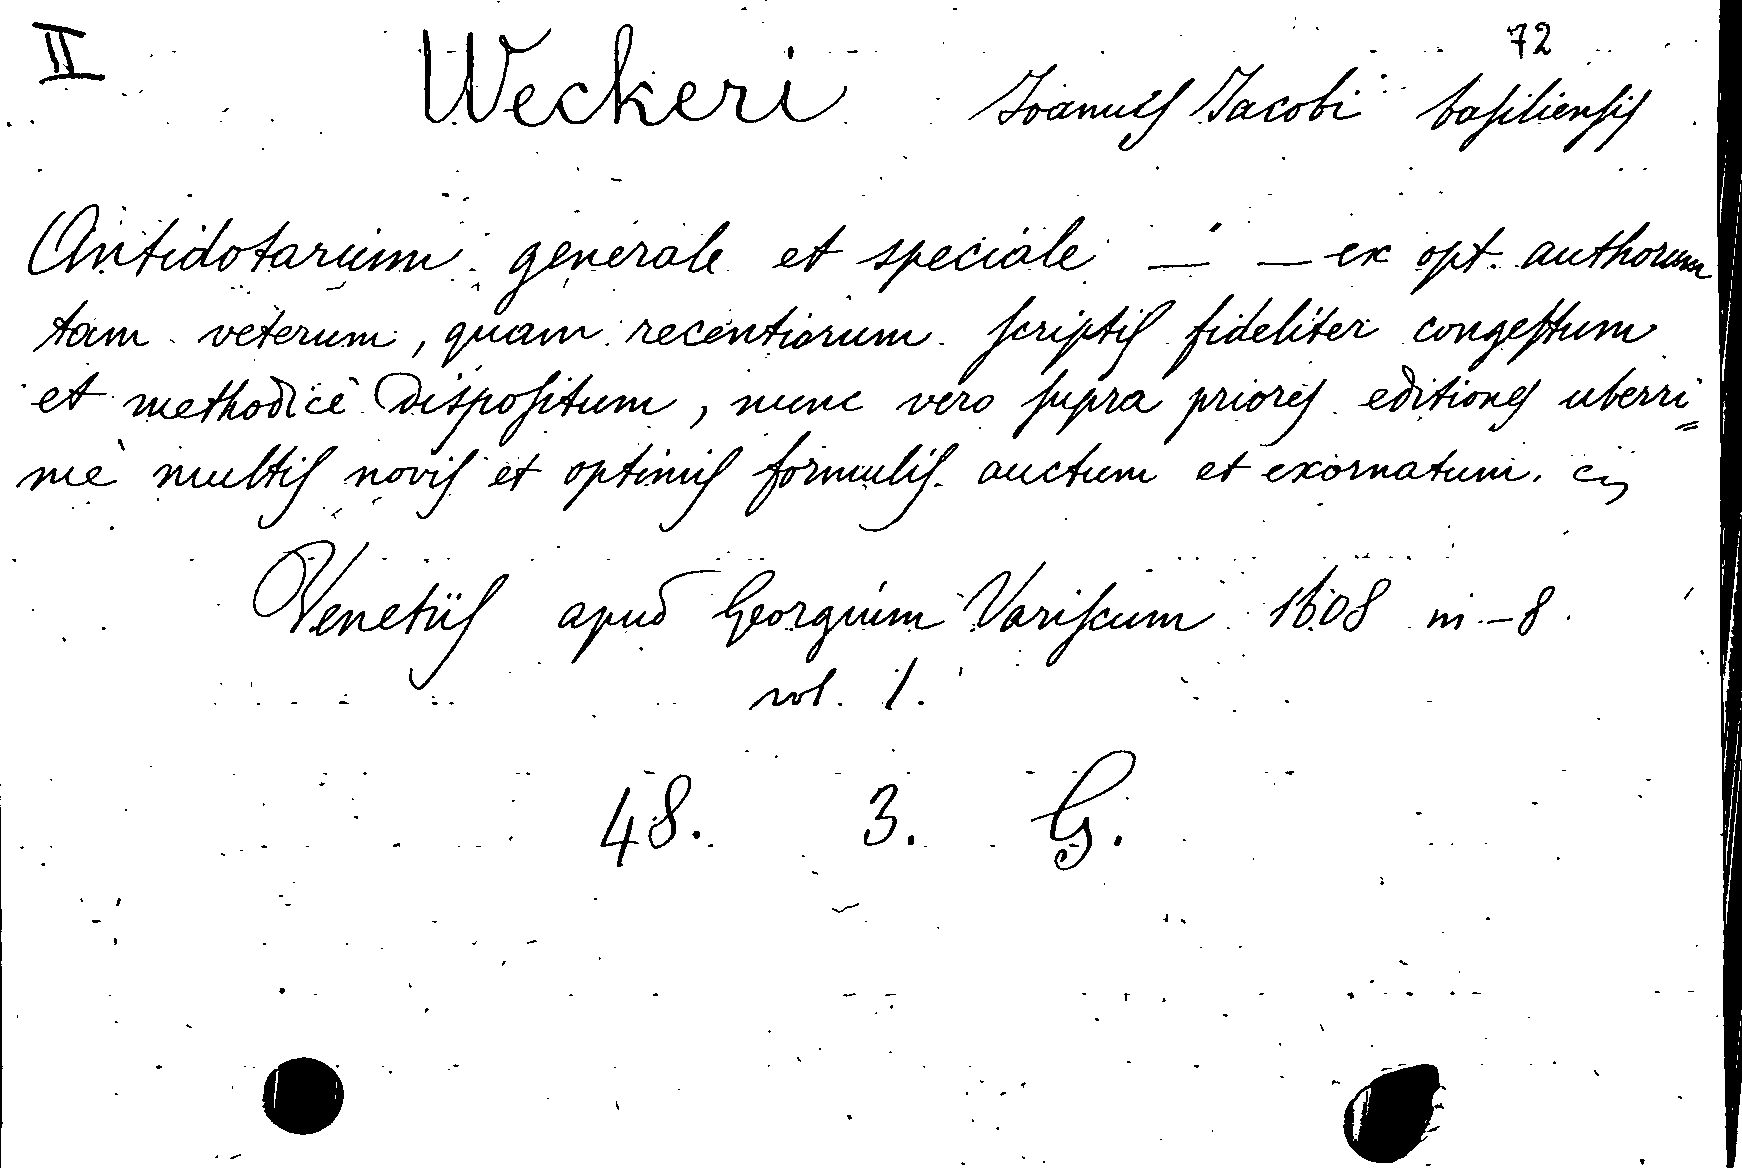 II
72
Weckeri Joannis Jacobi basiliensis
Antidotarium generale et speciale — — ex opt. authorum
tam veterum, quam recentiorum scriptis fideliter congestum
et methodicè dispositum, nunc vero supra priores editiones uberri=
mè multis novis et optimis formulis auctum et exornatum.
Venetiis apud Georgium Variscum 1608 in-8.
vol. 1.
48. 3. G.